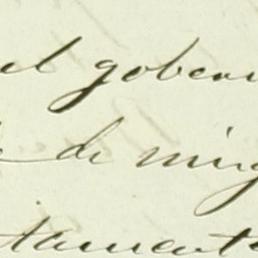 el gober
de ning
tamente